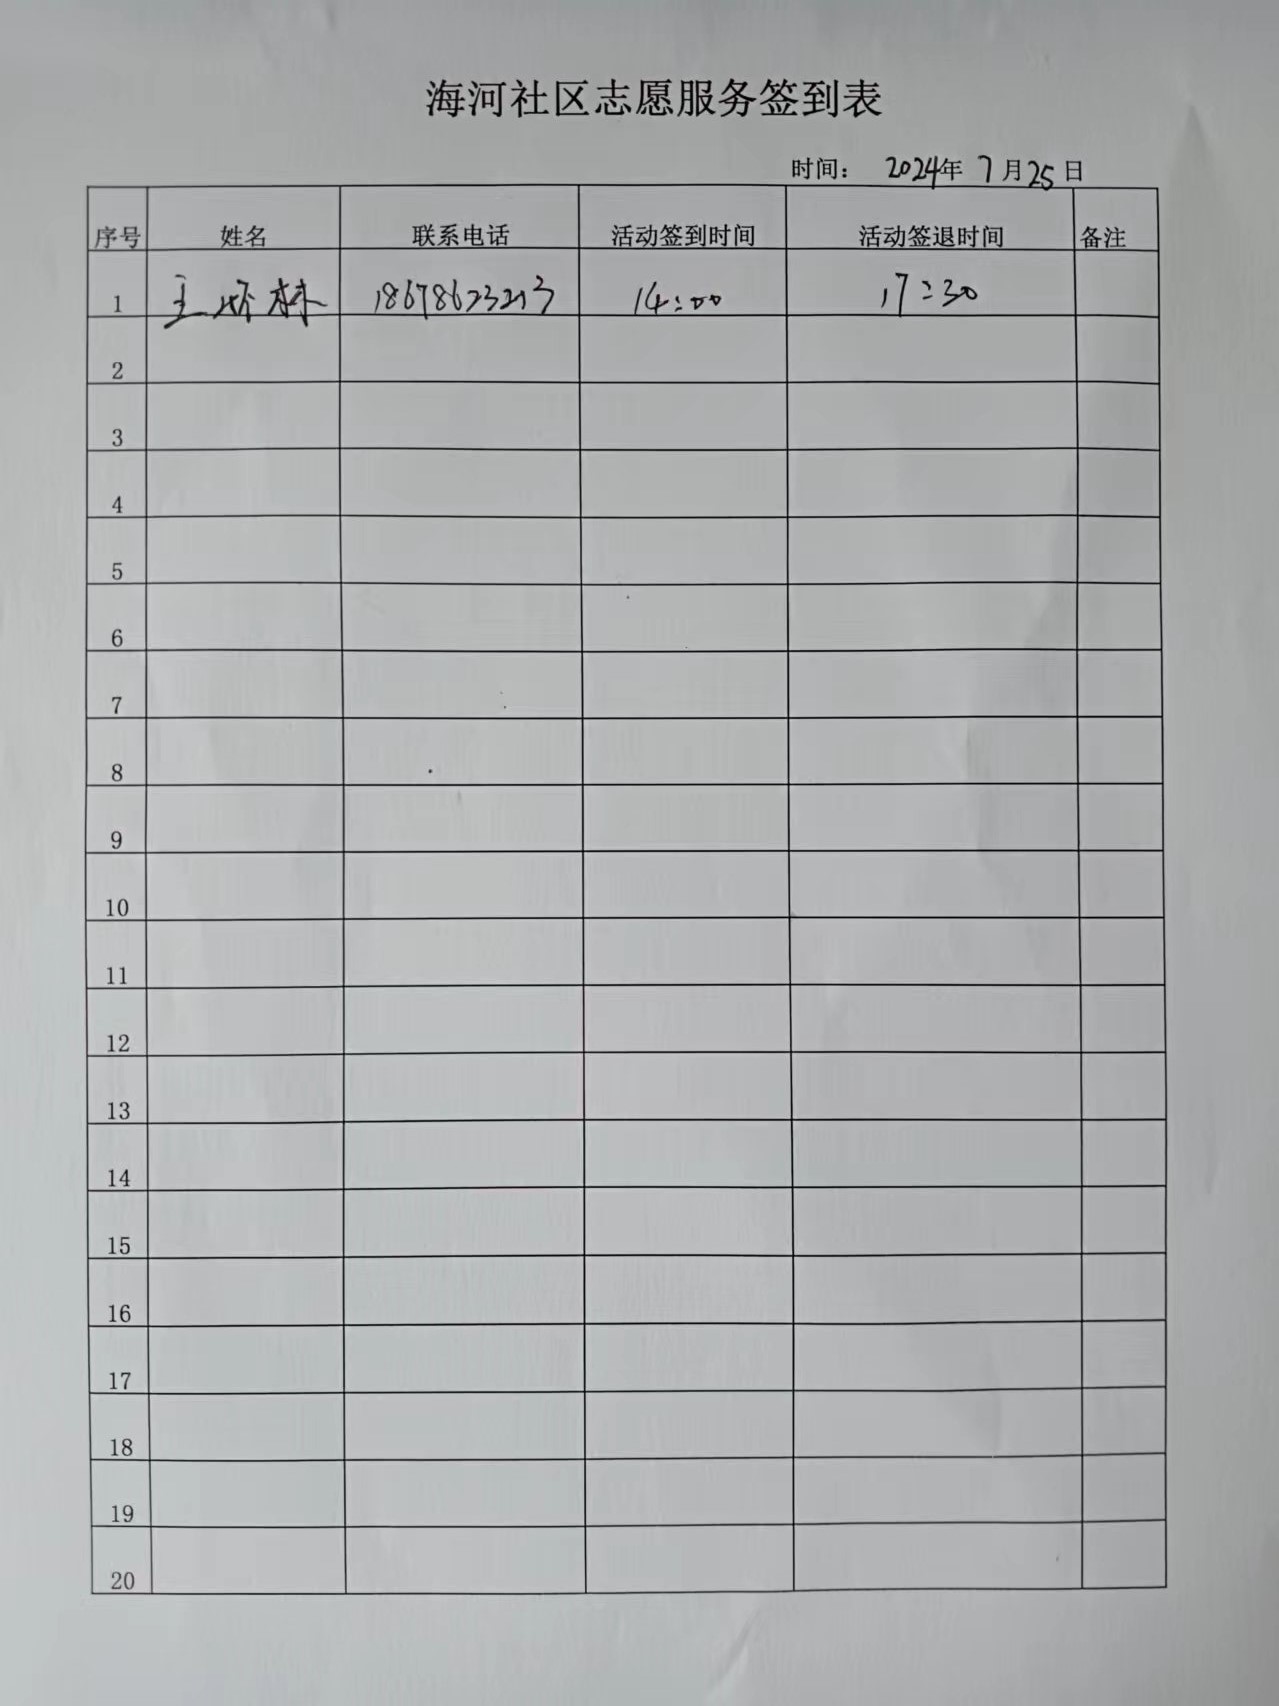 海河社区志愿服务签到表
时间： 2024年 7月25日
序号 姓名 联系电话 活动签到时间 活动签退时间 备注
1 14:00 17:30
2
3
4
5
6
7
8
9
10
11
12
13
14
15
16
17
18
19
20